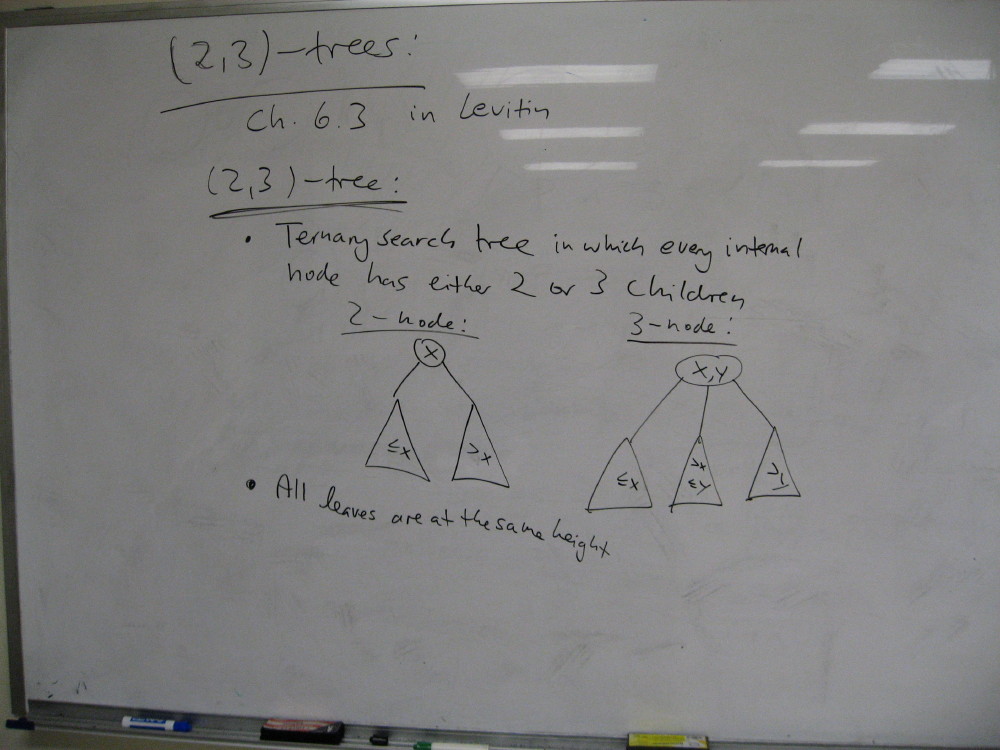 (2,3)-trees:
Ch. 6.3 in Levitin
(2,3)-tree:
• Ternary search tree in which every internal
node has either 2 or 3 children
2-node:
3-node:
x
x,y
≤x
>x
≤x
>x
≤y
>y
• All leaves are at the same height